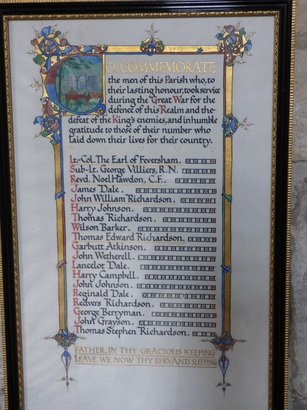 TO COMMEMORATE
the men of this Parish who, to
their lasting honour, took service
during the Great War for the
defence of this Realm and the
defeat of the King's enemies, and in humble
gratitude to those of their number who
laid down their lives for their country.
Lt.-Col. The Earl of Feversham.
Sub-Lt. George Villiers, R.N.
Revd. Noel Hawdon, C.F.
James Dale.
John William Richardson.
Harry Johnson.
Thomas Richardson.
Wilson Barker.
Thomas Edward Richardson.
Garbutt Atkinson.
John Wetherell.
Lancelot Dale.
Harry Campbell.
John Johnson.
Reginald Dale.
Redvers Richardson.
George Berryman.
John Grayson.
Thomas Stephen Richardson.
FATHER, IN THY GRACIOUS KEEPING
LEAVE WE NOW THY SERVANTS SLEEPING